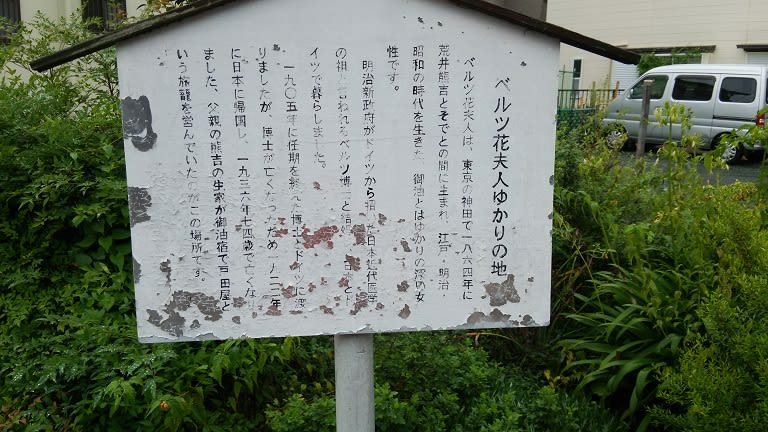 ベルツ花夫人ゆかりの地
ベルツ花夫人は、東京の神田で一八六四年に
荒井熊吉とそでとの間に生まれ、江戸・明治・
昭和の時代を生きた、御油とはゆかりの深い女
性です。
明治新政府がドイツから招いた日本近代医学
の祖と言われるベルツ博士と結婚、日本とド
イツで暮らしました。
一九〇五年に任期を終えた博士とドイツに渡
りましたが、博士が亡くなったため一九二二年
に日本に帰国し、一九三六年七四歳で亡くなり
ました。父親の熊吉の生家が御油宿で戸田屋と
いう旅籠を営んでいたのがこの場所です。